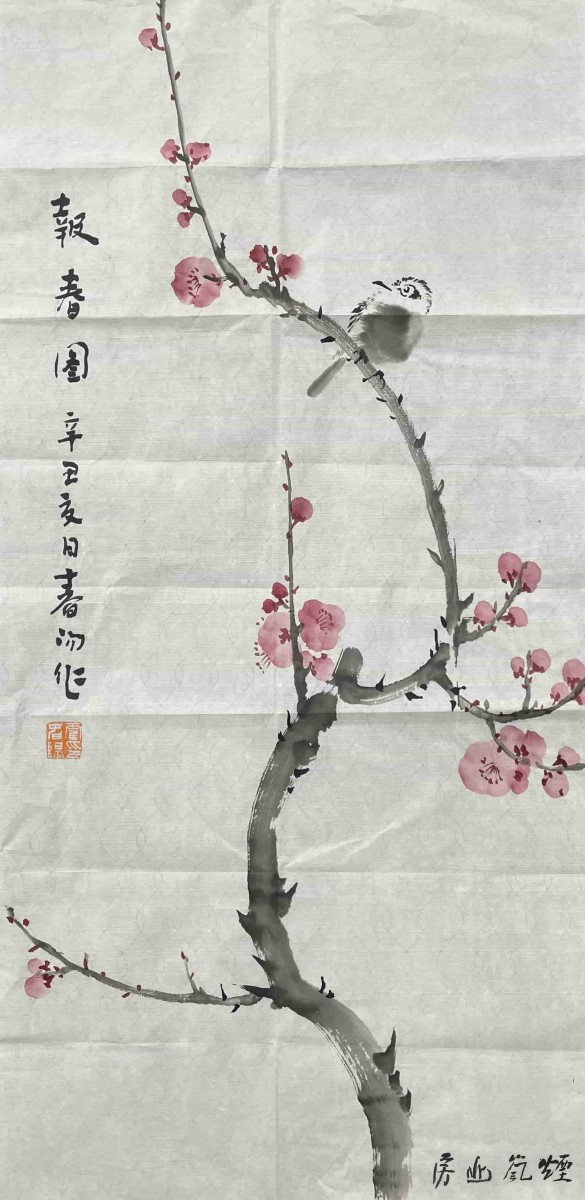 報春圖 辛丑夏日春作
煙山房